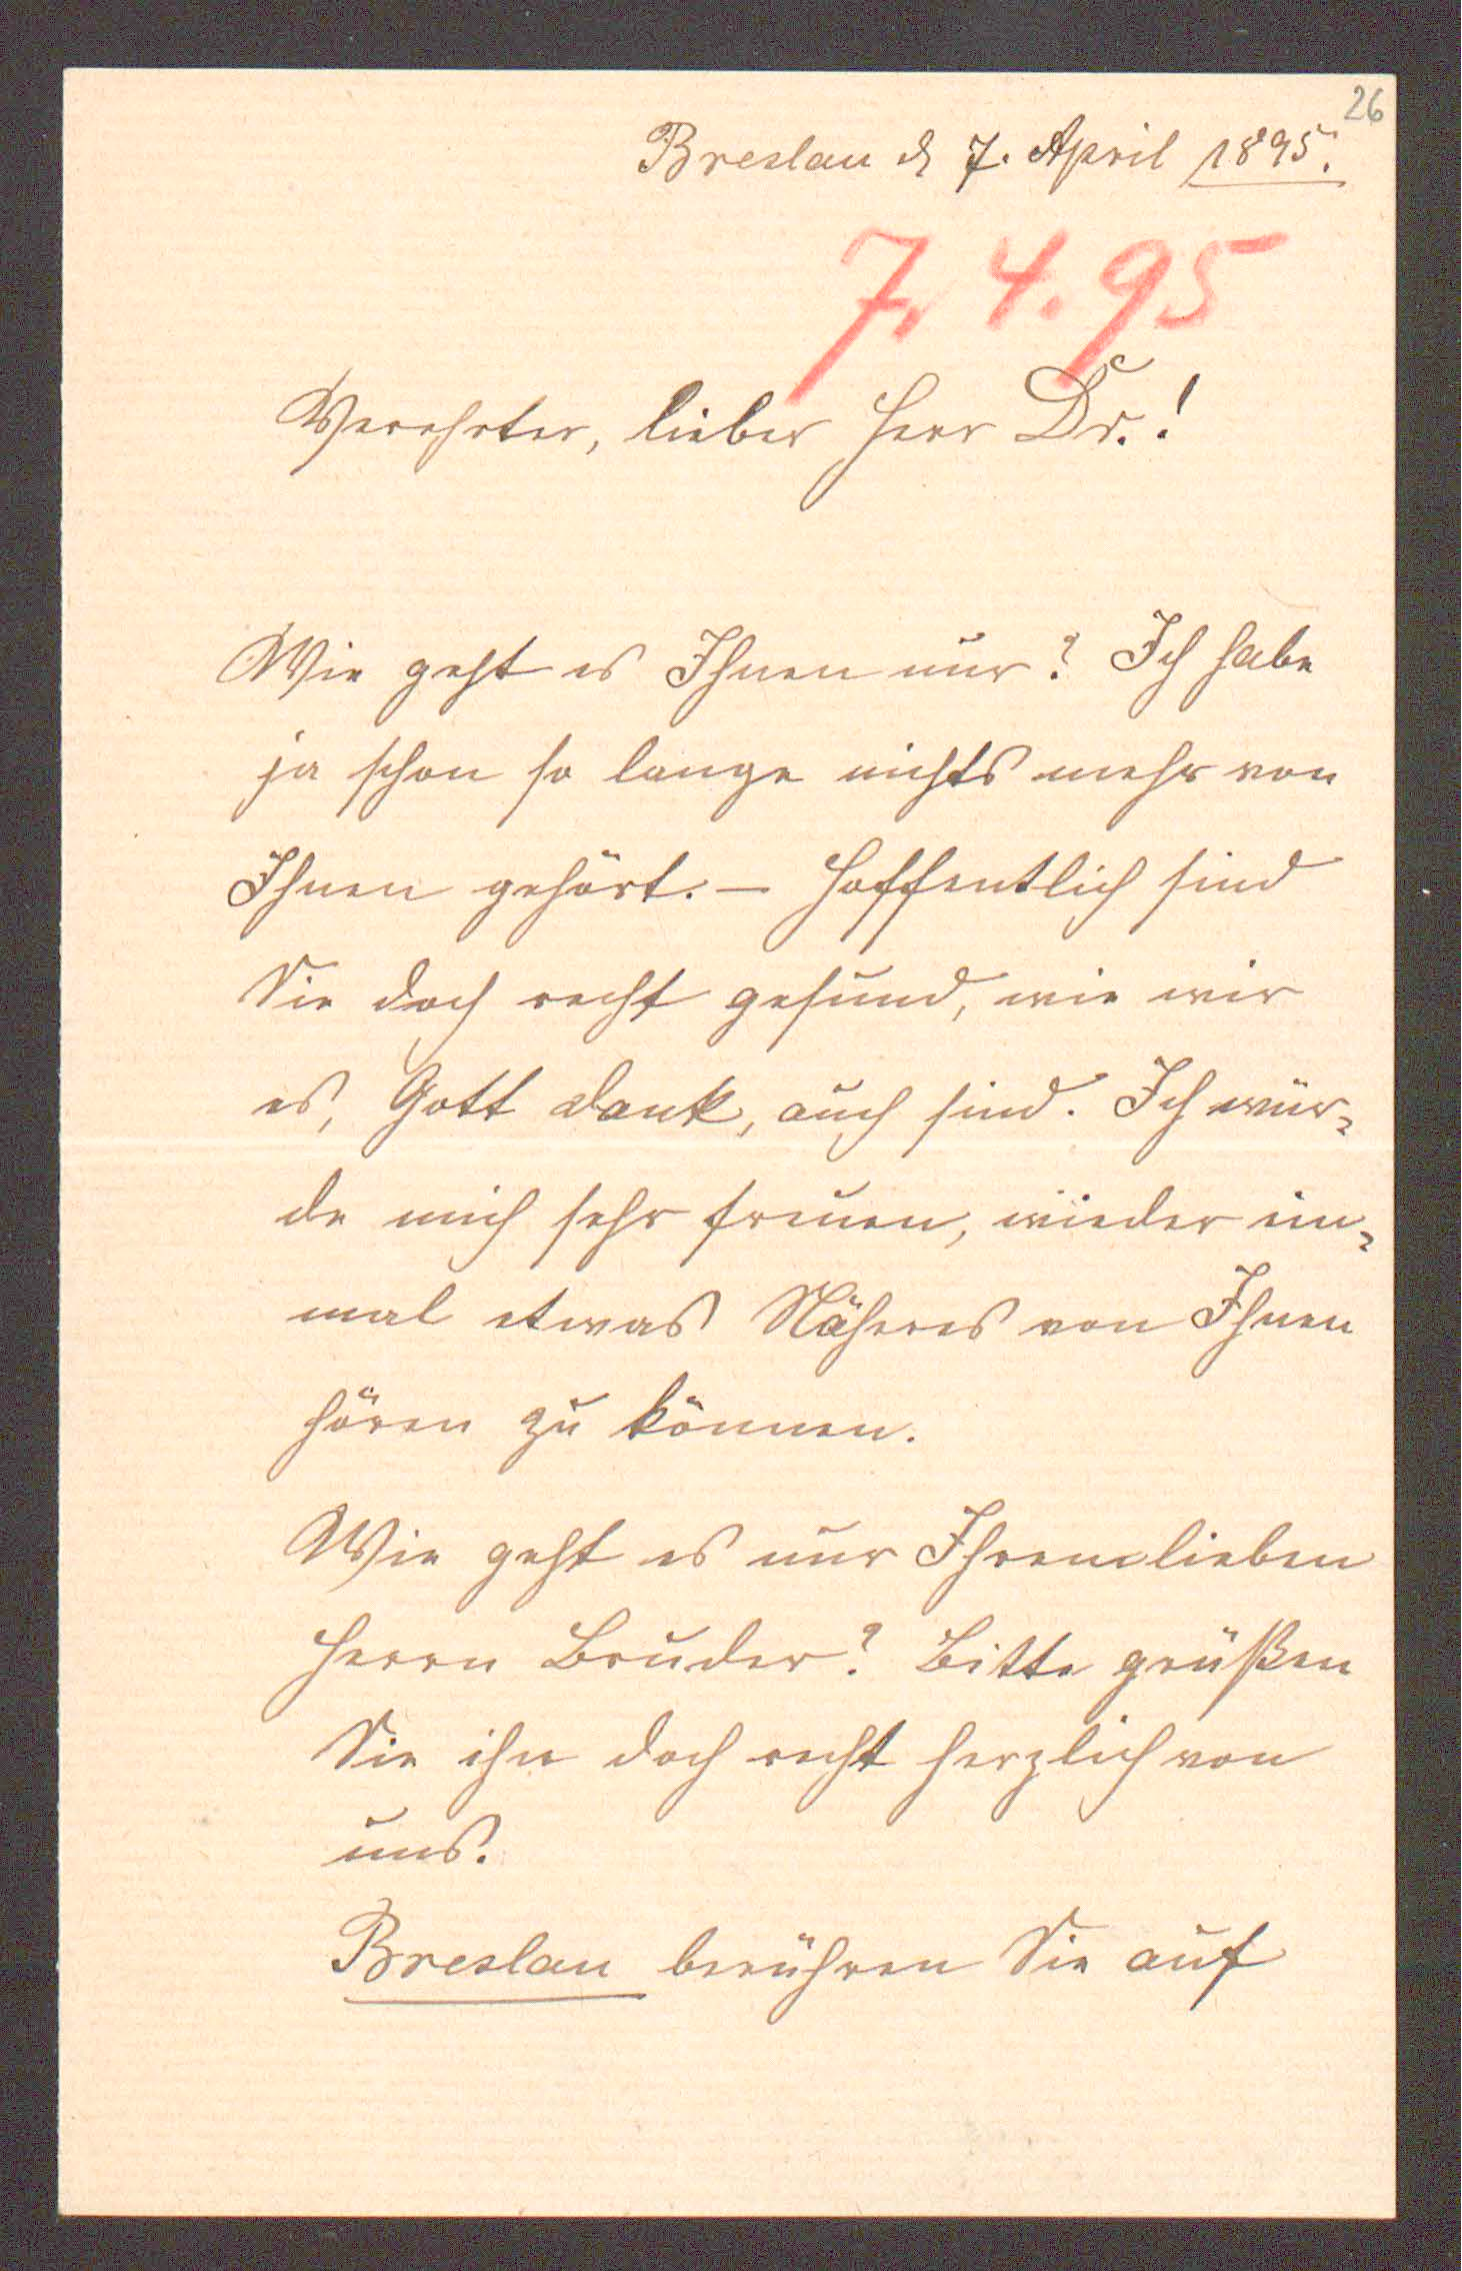 26
Breslau d 7. April 1895.
7. 4. 95
Verehrter, lieber Herr Dr.!
Wie geht es Ihnen nur? Ich habe
ja schon so lange nichts mehr von
Ihnen gehört. – Hoffentlich sind
Sie doch recht gesund, wie wir
es, Gott dank, auch sind. Ich wür-
de mich sehr freuen, wieder ein-
mal etwas Näheres von Ihnen
hören zu können.
Wie geht es nur Ihrem lieben
Herrn Bruder? Bitte grüßen
Sie ihn doch recht herzlich von
uns.
Breslau berühren Sie auf